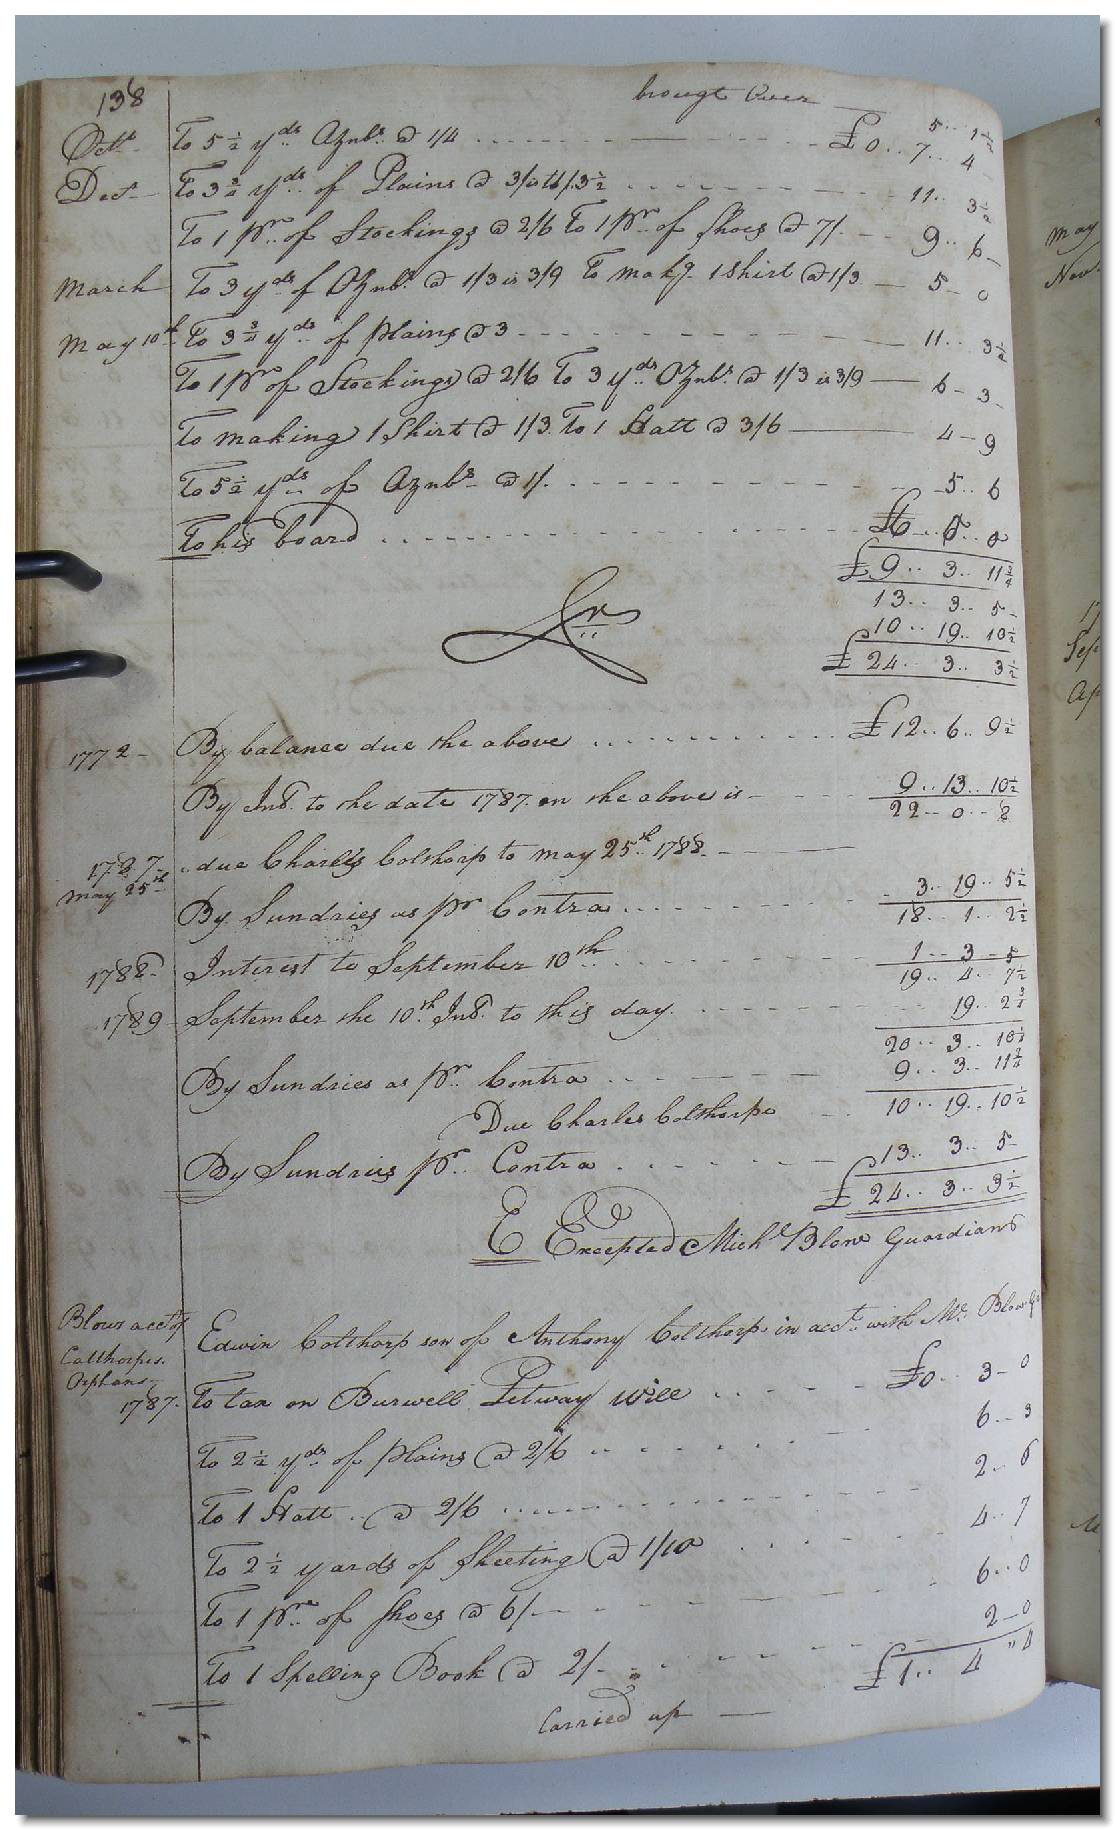 138
brougt Over — 5.. 1 1/2
Octr. To 5 1/2 yds. Oznbs. @ 1/4 £0.. 7.. 4
Dec.— To 3 3/4 yds. of Plains @ 11.. 3 1/2
To 1 Pr. of Stockings @ 2/6 To 1 Pr. of Shoes @ 7/. — 9.. 6
March To 3 yds of Oznbs. @ 1/3 is 3/9 To makg. 1 Shirt @ 1/3 — 5 - 0
May 10th To 3 3/4 yds. of plains @ 3 11.. 3 1/2
To 1 Pr. of Stockings @ 2/6 To 3 yds. Oznbs. @ 1/3 is 3/9 — 6 - 3
To making 1 Shirt @ 1/3. To 1 Hatt @ 3/6 — 4 - 9
To 5 1/2 yds. of Oznbs. @ 1/. 5.. 6
To his board £6.. 0.. 0
£9.. 3.. 11 3/4
13.. 3.. 5
10.. 19.. 10 1/2
£24.. 3.. 3 1/2
Cr.
1772 - By balance due the above £12.. 6.. 9 1/2
By Int. to the date 1787. on the above is 9.. 13.. 10 1/2
22.. 0.. 8
1787. due Charles Colthorp to may 25th. 1788
may 25th By Sundries as pr Contra 3.. 19.. 5 1/2
18.. 1.. 2 1/2
1788. Interest to September 10th. 1.. 3 - 5
19.. 4.. 7 1/2
1789 September the 10th. Int. to this day. 19.. 2 3/4
20.. 3.. 10 1/4
By Sundries as pr. Contra 9.. 3.. 11 3/4
Due Charles Colthorpe 10.. 19.. 10 1/2
By Sundries pr. Contra 13.. 3.. 5
£24.. 3.. 3 1/2
E Excepted Michl. Blow Guardian
Blows acct. of
Calthorpes.
Orphans
Edwin Colthorp son of Anthony Colthorp in acct. with M. Blow
1787. To tax on Burwell Petway will £0.. 3 - 0
To 2 1/2 yds. of plains @ 2/6 6.. 3
To 1 Hatt @ 2/6 2.. 6
To 2 1/2 yards of Sheeting @ 1/10 4.. 7
To 1 Pr. of Shoes @ 6/- 6.. 0
To 1 Spelling Book @ 2/- 2 - 0
£1.. 4 " 4
Carried up —